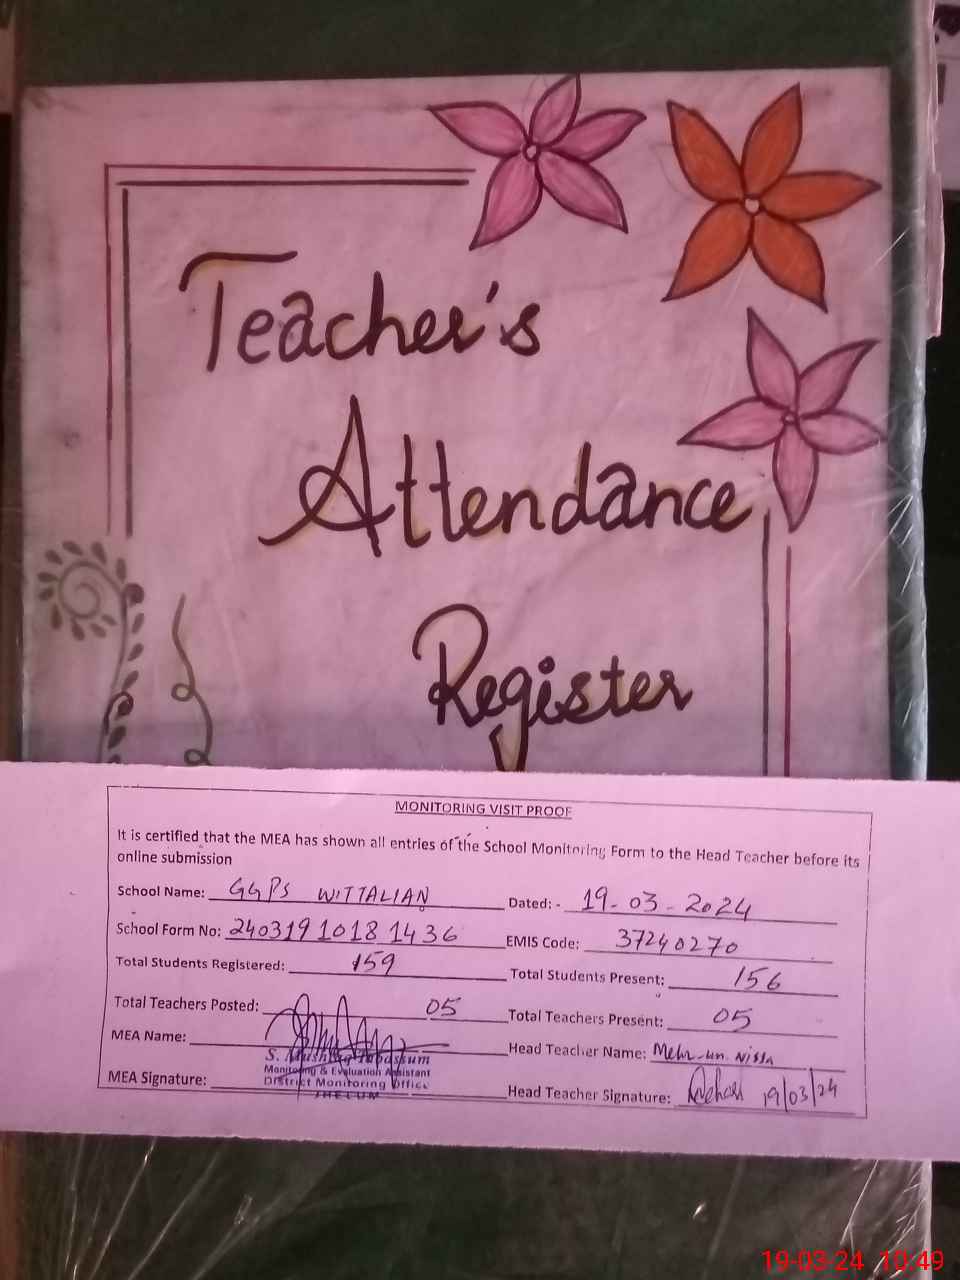 Teacher's
Attendance
Register
MONITORING VISIT PROOF
It is certified that the MEA has shown all entries of the School Monitoring Form to the Head Teacher before its
online submission
School Name: GGPS WITTALIAN Dated: - 19-03-2024
School Form No: 240319 1018 1436 EMIS Code: 37240270
Total Students Registered: 159 Total Students Present: 156
Total Teachers Posted: 05 Total Teachers Present: 05
MEA Name: Head Teacher Name: Mehr-un-Nissa
S. Mushtaq Tabassum
Monitoring & Evaluation Assistant
District Monitoring Office
JHELUM
MEA Signature: Head Teacher Signature: 19/03/24
19-03-24 10:49